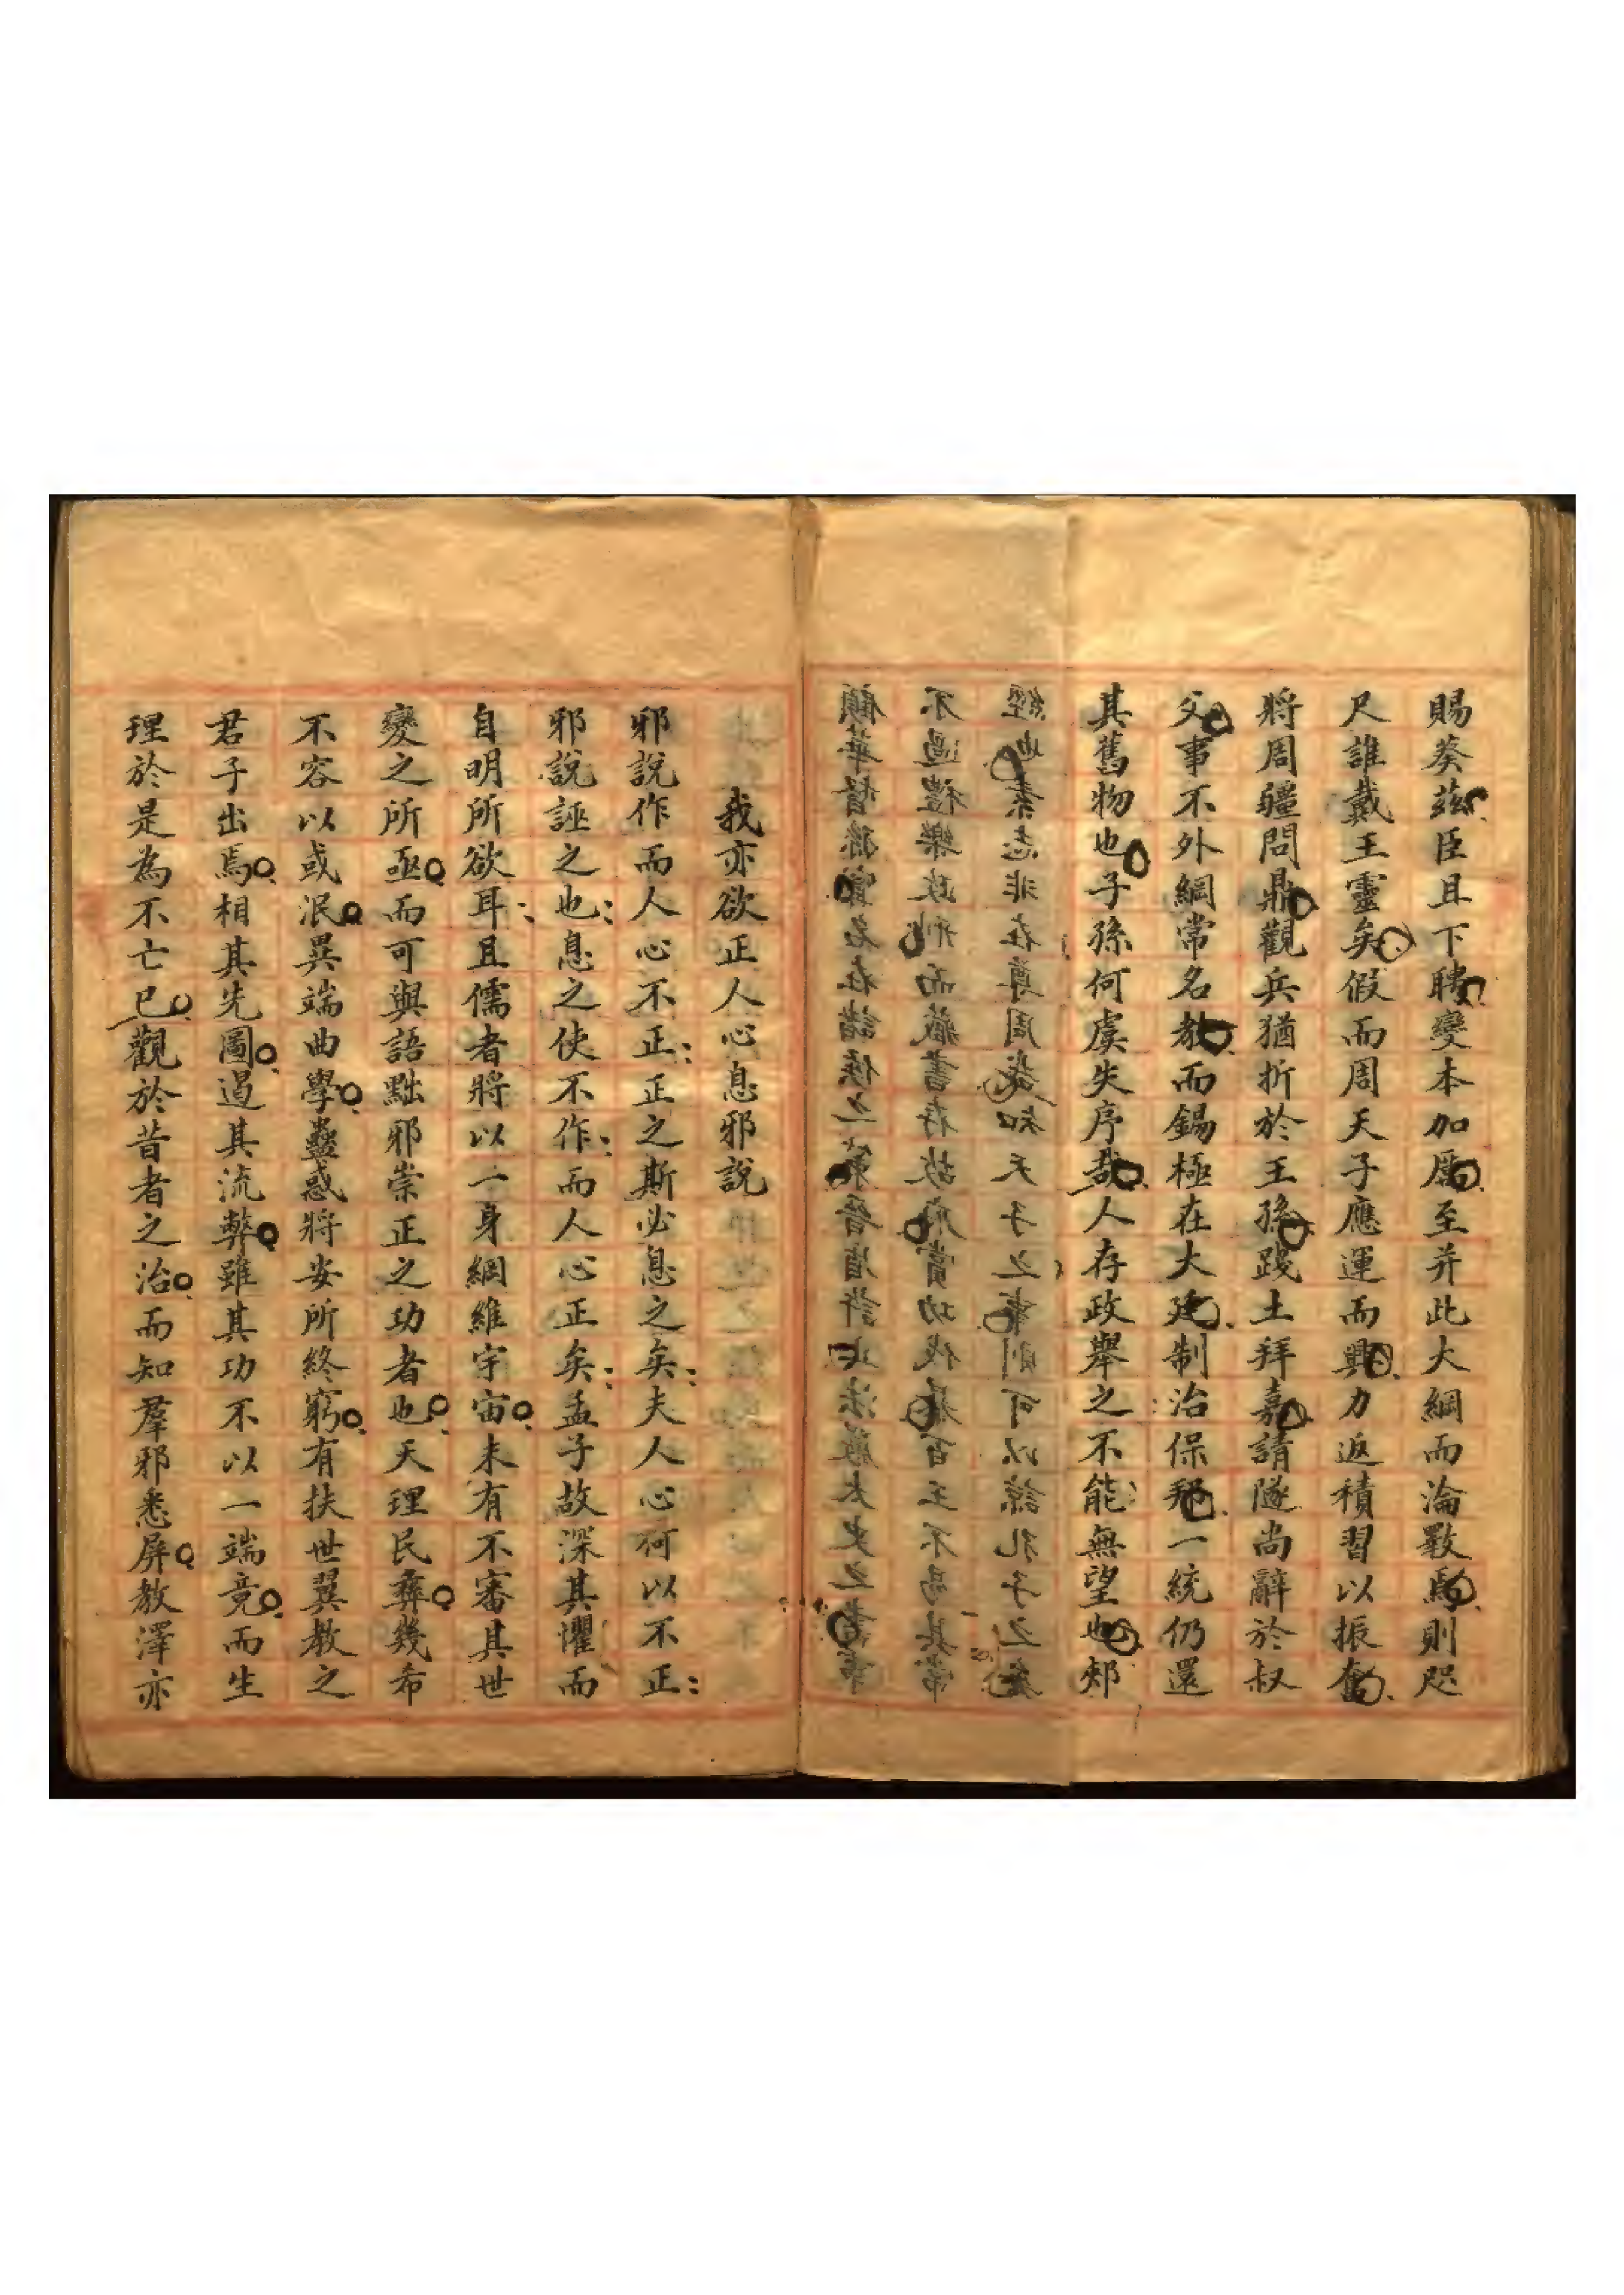 賜葵茲臣且下聘變本加厲至并此大綱而淪斁焉則咫
尺誰戴王靈矣假而周天子應運而興力返積習以振奮
將周疆問鼎觀兵猶折於王孫踐土拜嘉請隧尚辭於叔
父事不外綱常名教而錫極在大建制治保邦一統仍還
其舊物也子孫何虞失序哉人存政舉之不能無望也郟
經也素志非在尊周哉知天子之事則可以諒孔子之
不過禮樂政刑而藏書存故府賞功伐百王不易其常
顧華督孫甯名在諸侯之策晉盾許止法嚴太史之書
我亦欲正人心息邪說
邪說作而人心不正正之斯必息之矣夫人心何以不正
邪說誣之也息之使不作而人心正矣孟子故深其懼而
自明所欲耳且儒者將以一身綱維宇宙未有不審其世
變之所亟而可與語黜邪崇正之功者也天理民彝幾希
不容以或泯異端曲學蠱惑將安所終窮有扶世翼教之
君子出焉相其先圖遏其流弊雖其功不以一端竟而生
理於是為不亡已觀於昔者之治而知羣邪悉屏教澤亦